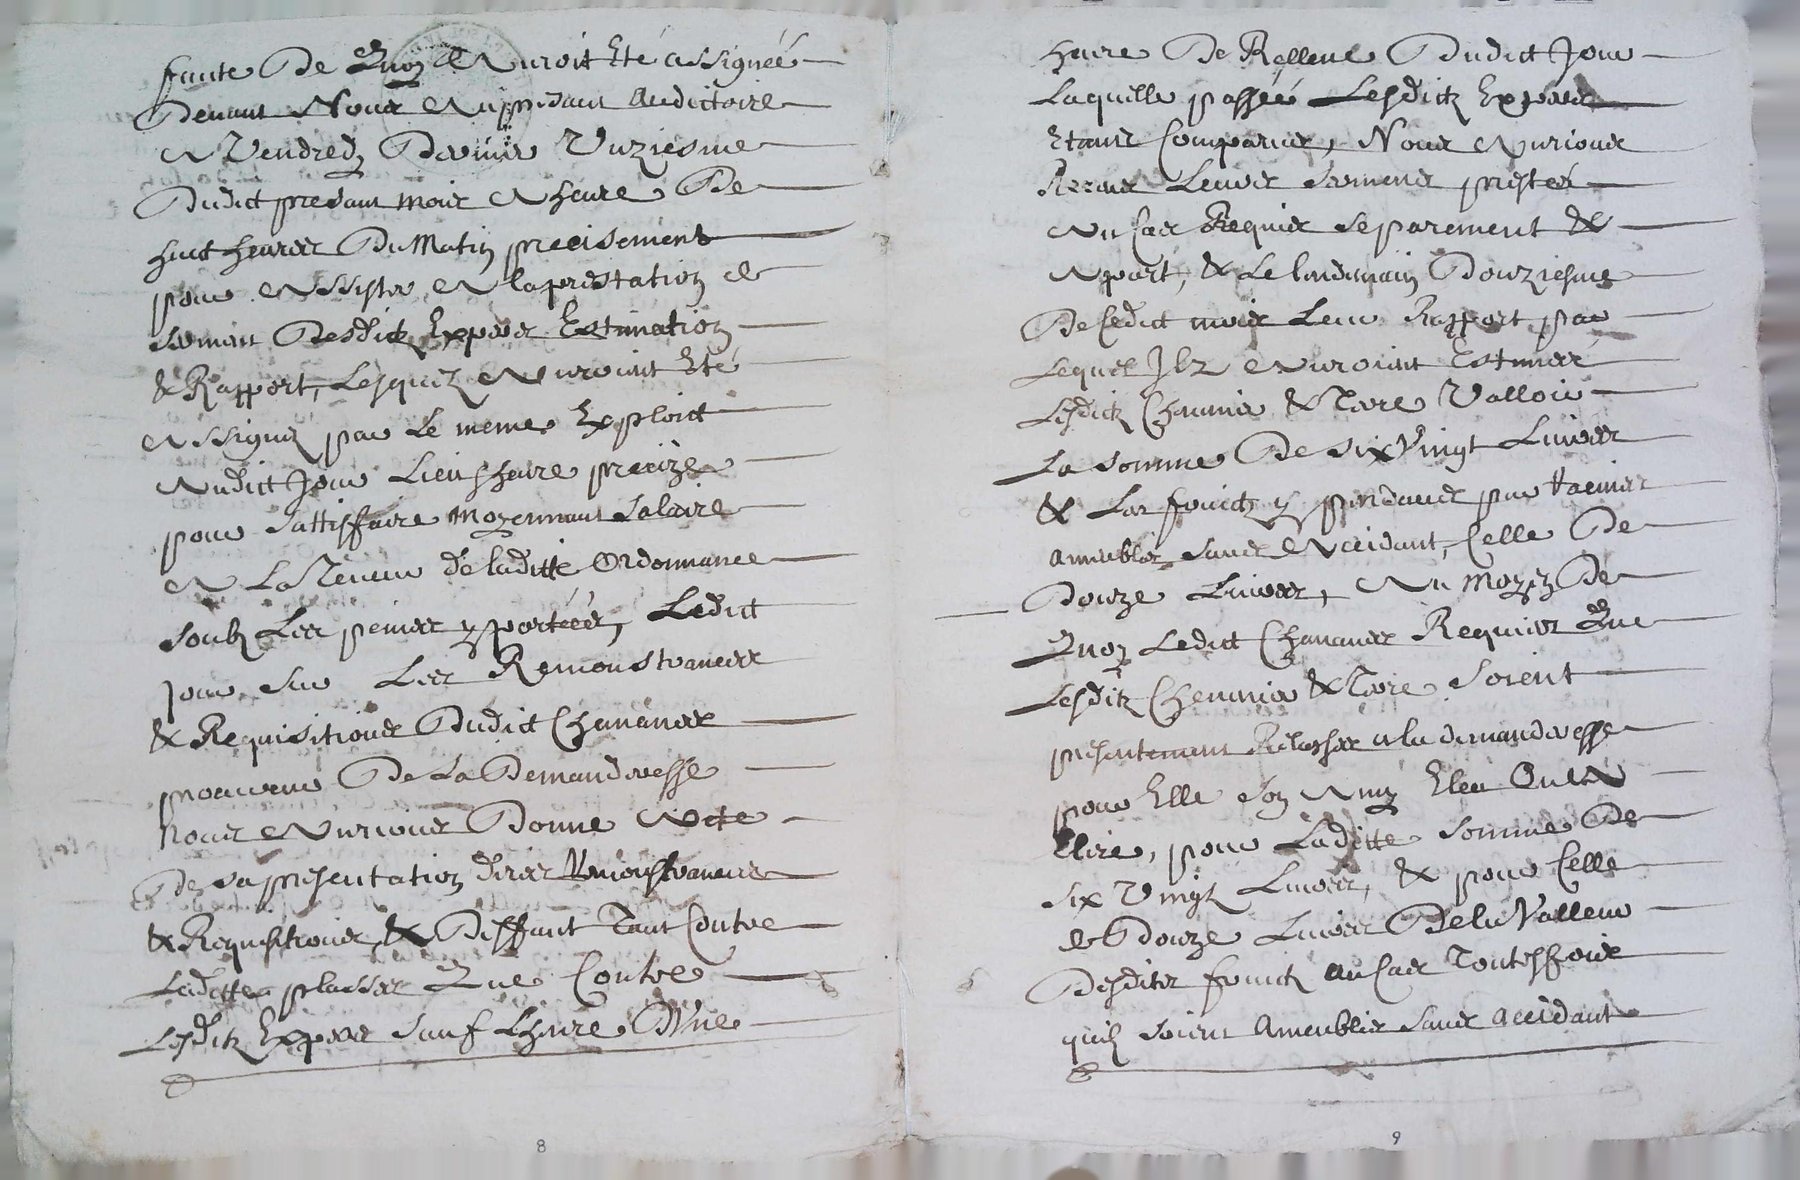 faute De Quoy Auroit Eté assignéé
Devant Nous A nŕesant Audictoire
A Vendredy Dernier Unziesme
Dudict presant mois A heure De
huict heures Du Matin precisement
pour Assister A la prestation de
serment Desdictz Expers Estimation
& Rapport, Lesquelz Auroint Eté
Assignez par Le meme Exploict
Audict Jour Lieu & heure precize
pour sattisffaire moyennant Salaire
A La Teneur de laditte Ordonnance
soubz Les peines y portéés, Ledict
jour sur Les Remonstrances
& Requisitions Dudict Chananer
procureur De La Demanderesse
Nous Aurions Donne Acte
De sa presentation dires Remonstrances
& Requisitions, & Deffaut Tant Contre
Laditte plasser Que Contre
Lesditz Expers sauf Lheure Dune
8
heure De Relleue Dudict Jour
Laquelle passéé Lesdictz Expers
Etant Comparus, Nous Aurions
Receus Leurs sermens prestes
Au Cas Requis separement &
Apart, & Le landemain Douziesme
De Cedict mois Leur Rapport par
Lequel Ilz Auroint Estimer
Lesdictz Chemier & Terre Valloir
La somme De six Vingt Livres
& Les fruictz y pendans par Racines
Ameubles sans Accidant, Celle De
Douze Livres, Au Moyen De
Quoy Ledict Chananer Requiert Que
Lesditz Chemier & Terre soient
presentement Relasches a la demanderesse
pour Elle son Amy Eleu Ou A
Elire, pour Laditte somme De
six Vingt Livres, & pour Celle
de Douze Livres De la Valleur
Desdits fruictz au Cas Toutesfois
quilz soient Ameublis sans accidant
9